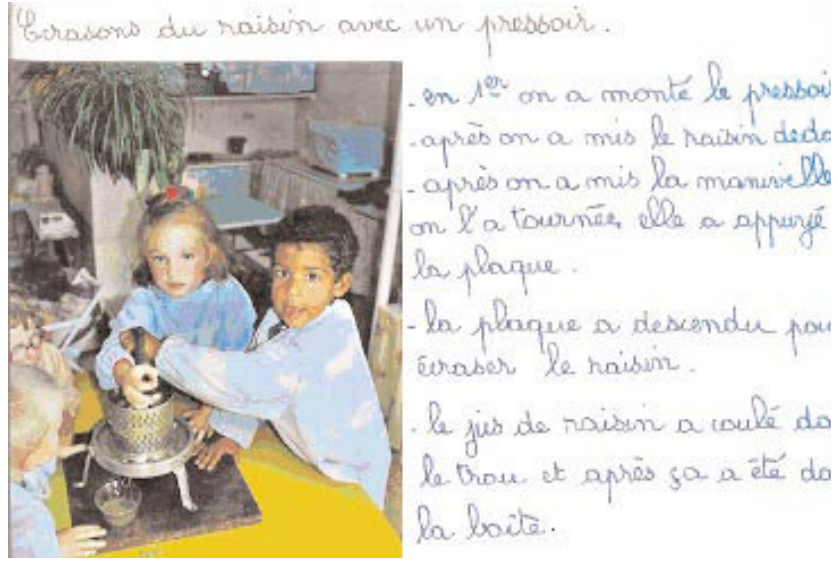 Ecrasons du raisin avec un pressoir.
- en 1er on a monté le pressoir
- après on a mis le raisin deda
- après on a mis la manivelle
on l'a tournée, elle a appuyé
la plaque.
- la plaque a descendu pou
écraser le raisin.
- le jus de raisin a coulé da
le trou et après ça a été da
la boîte.